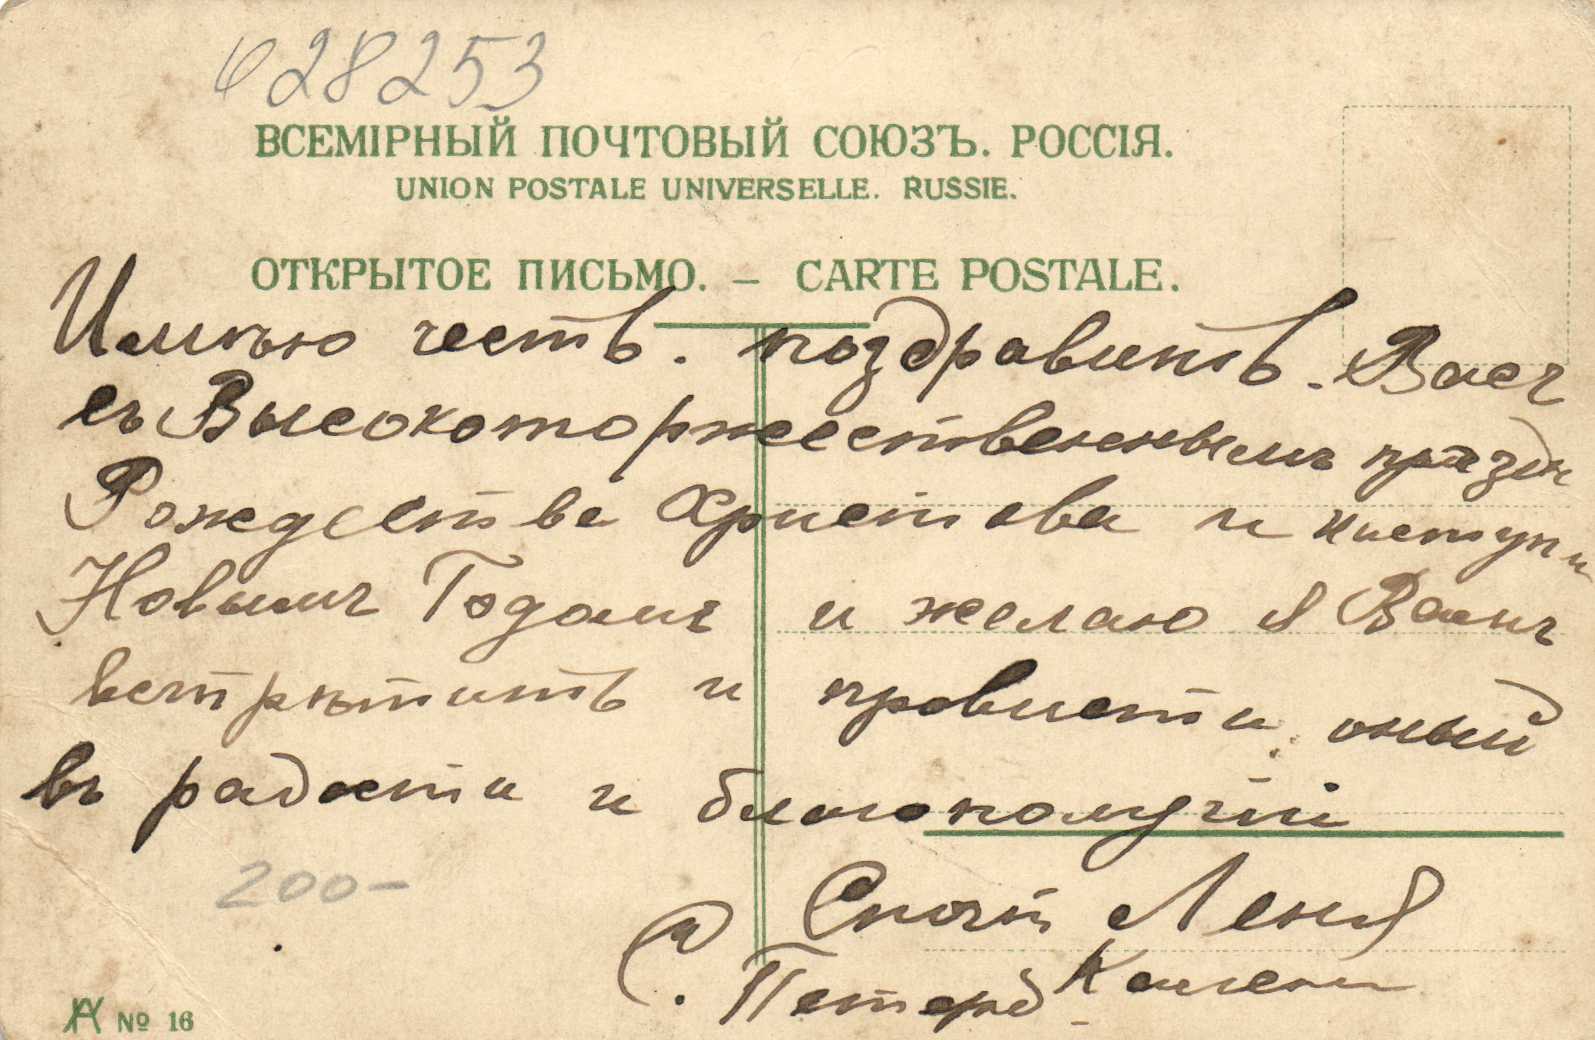 028253
ВСЕМІРНЫЙ ПОЧТОВЫЙ СОЮЗЪ. РОССІЯ.
UNION POSTALE UNIVERSELLE. RUSSIE.
ОТКРЫТОЕ ПИСЬМО. — CARTE POSTALE.
Имѣю честь. поздравить. Васъ
съ Высокоторжественнымъ празд
Рождества Христова и
Новымъ Годомъ и желаю я Вамъ
встрѣтить и провисти оный
въ радости и благополучіи
200-
С почт Леня
С. Петерб
№ 16